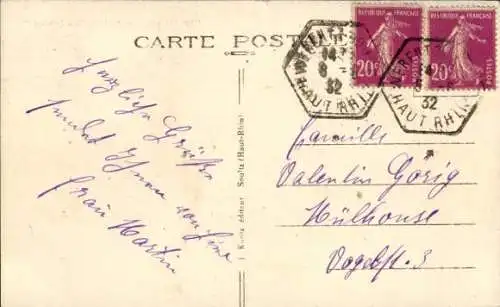 CARTE POST
REPUBLIQUE FRANÇAISE
20c
POSTES
REPUBLIQUE FRANÇAISE
20c
POSTES
32
HAUT RHIN
32
HAUT RHIN
Herzliche Grüße
sendet Ihnen
Frau Martin
éditeur Soultz (Haut-Rhin)
Famille
Valentin Görig
Mülhouse
Vogelst. 3